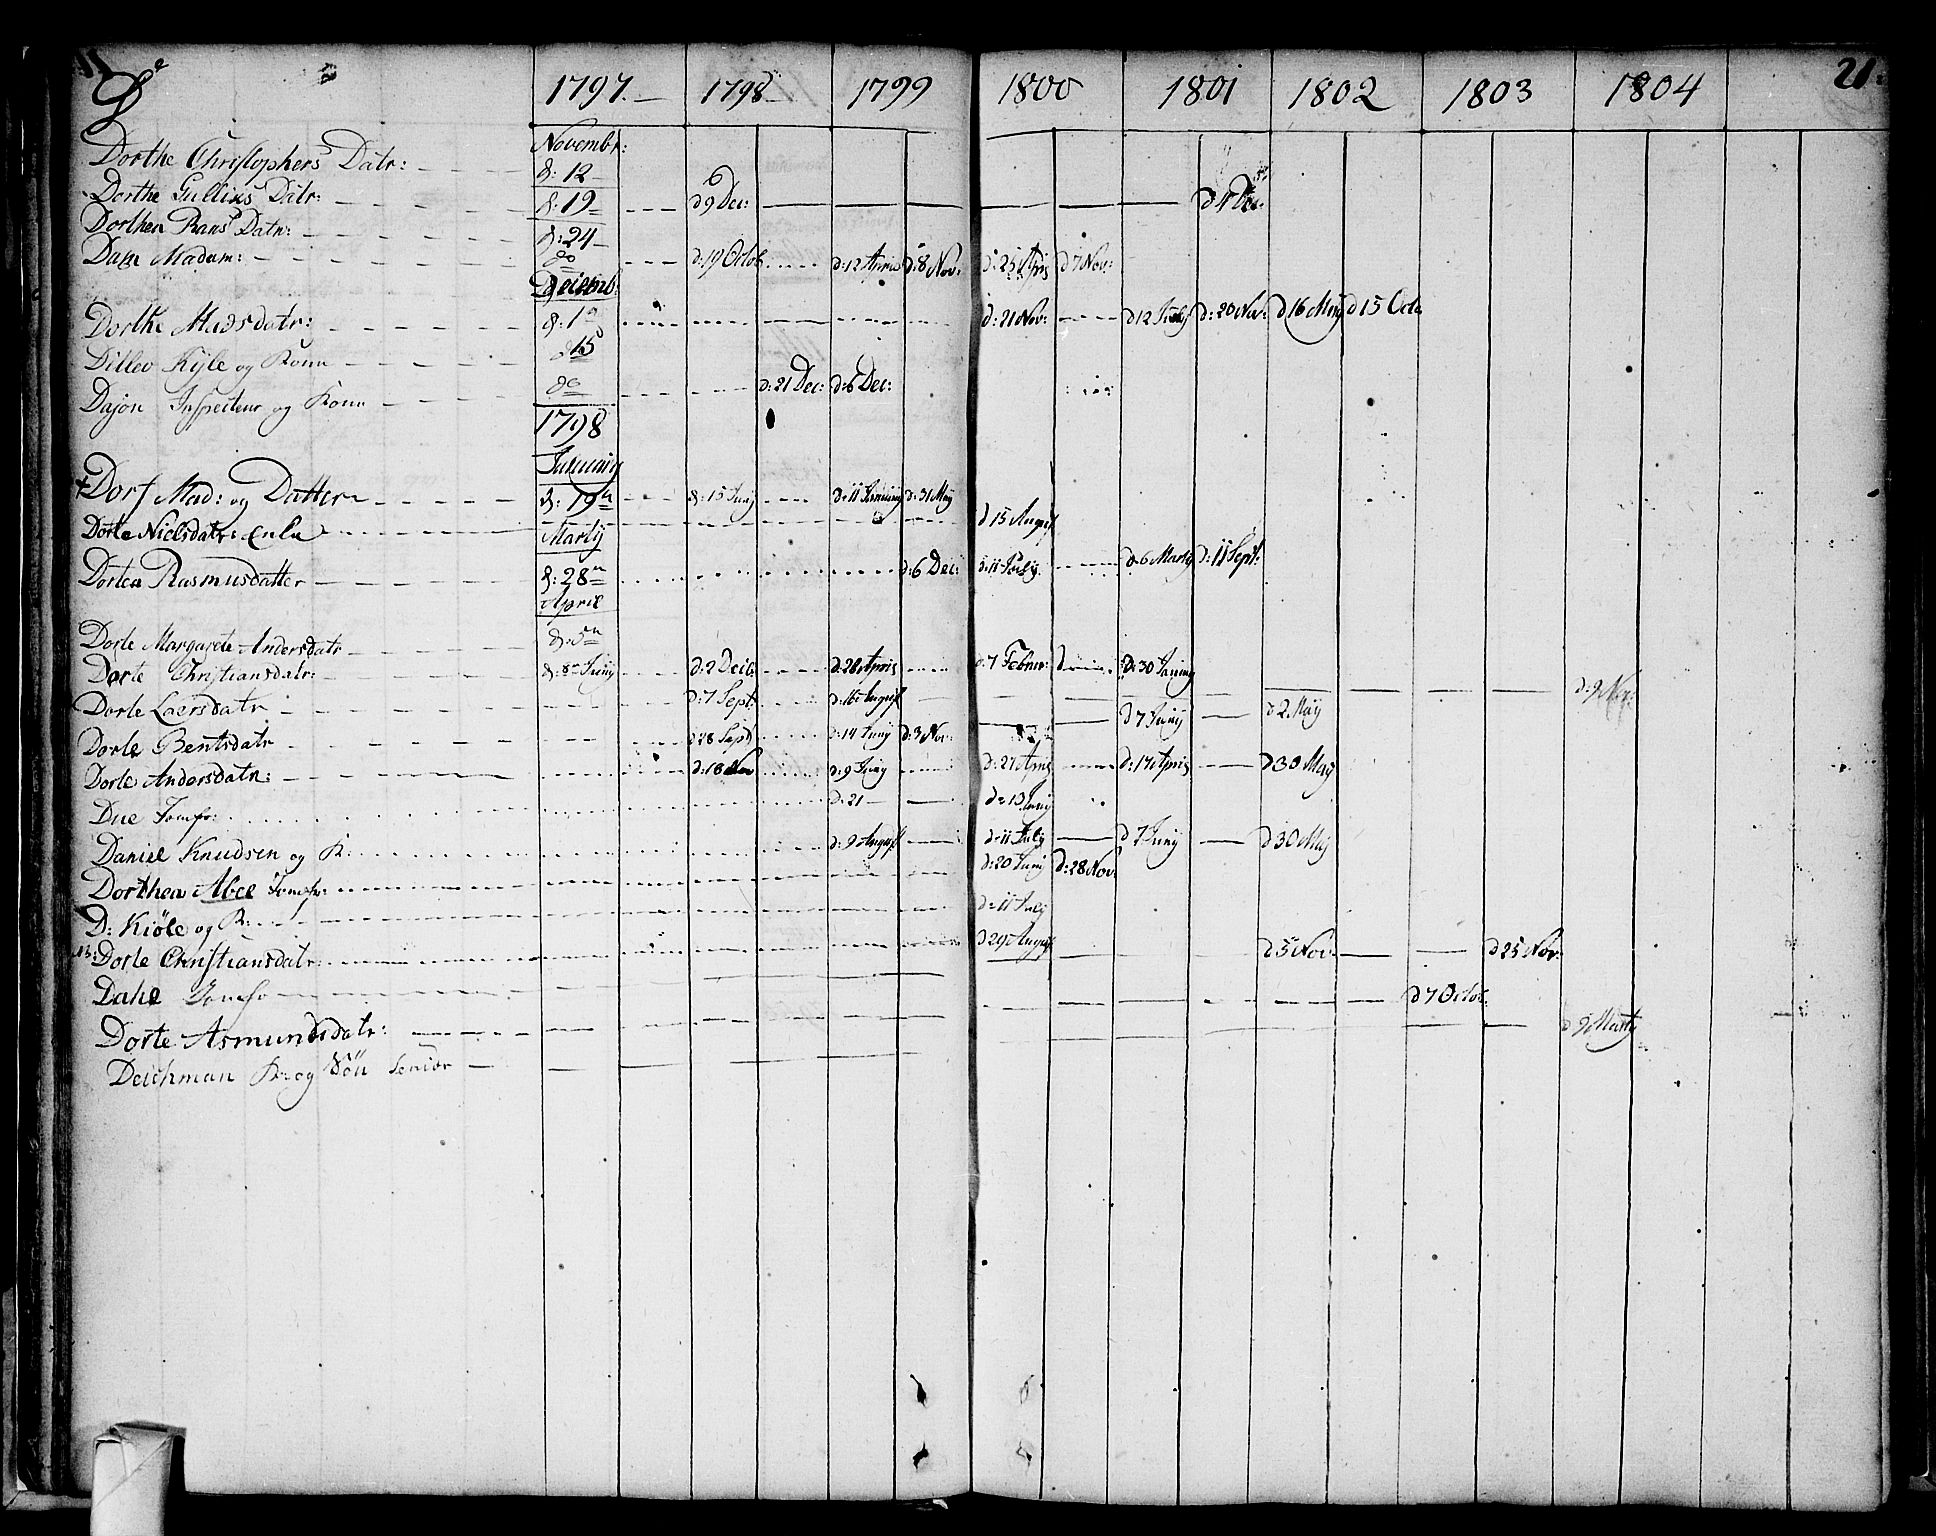 D 1797. 1798 1799 1800 1801 1802 1803 1804 21.
Novembr:
Dorthe Christophers Datr: d: 12
Dorthe Gullixs Datr: d: 19 d 9 Dec: d 4 Dec:
Dorthea Rans Datr: d: 24
Dahl Madam: do d: 19 Octob d: 12 April d: 8 Nov: d: 25 April d 7 Nov:
Decemb:
Dorthe Madsdatr: d: 1 d: 21 Nov: d 12 July d: 20 Nov: d 16 May d 15 Octo
Ditlev Kyle og Kone d 15
Dajon Inspecteur og Kone do d: 21 Dec: d: 6 Dec:
1798
January
Dorf Mad: og Datter d: 19 d: 15 Junij d: 11 January d: 31 May
Dorte Nielsdatr: Enke Martij d 15 August
Dortea Rasmusdatter d: 28 d: 6 Dec: d: 11 July d: 6 Martij d: 11 Sept:
April
Dorte Margarete Andersdatr d: 5
Dorte Christiansdatr: d: 8 Junij d: 2 Decb: d: 28 April d: 7 Februr: d: 30 January
Dorte Laersdatr d: 7 Sept: d: 16 August d: 9 Nov:
Dorte Bentsdatr d 28 Sept d: 14 Junij d: 3 Nov: d 7 Junij d 2 May
Dorte Andersdatr: d: 18 Nov d: 9 Junij d: 27 April d: 17 April d 30 May
Due Jomfr: d: 21 d: 13 Junij
Daniel Knudsen og K: d: 9 August d: 11 July d 7 Junij d 30 May
Dorthea Abel Jomfr: d: 20 Junij d: 28 Nov:
D: Kiöle og K: d: 11 July
NB: Dorte Christiansdatr: d 29 August d 5 Nov: d 25 Nov:
Dahl Jomfr d 7 Octob:
Dorte Asmundsdatr: d 9 Martij
Deichman K: og Sön Senior